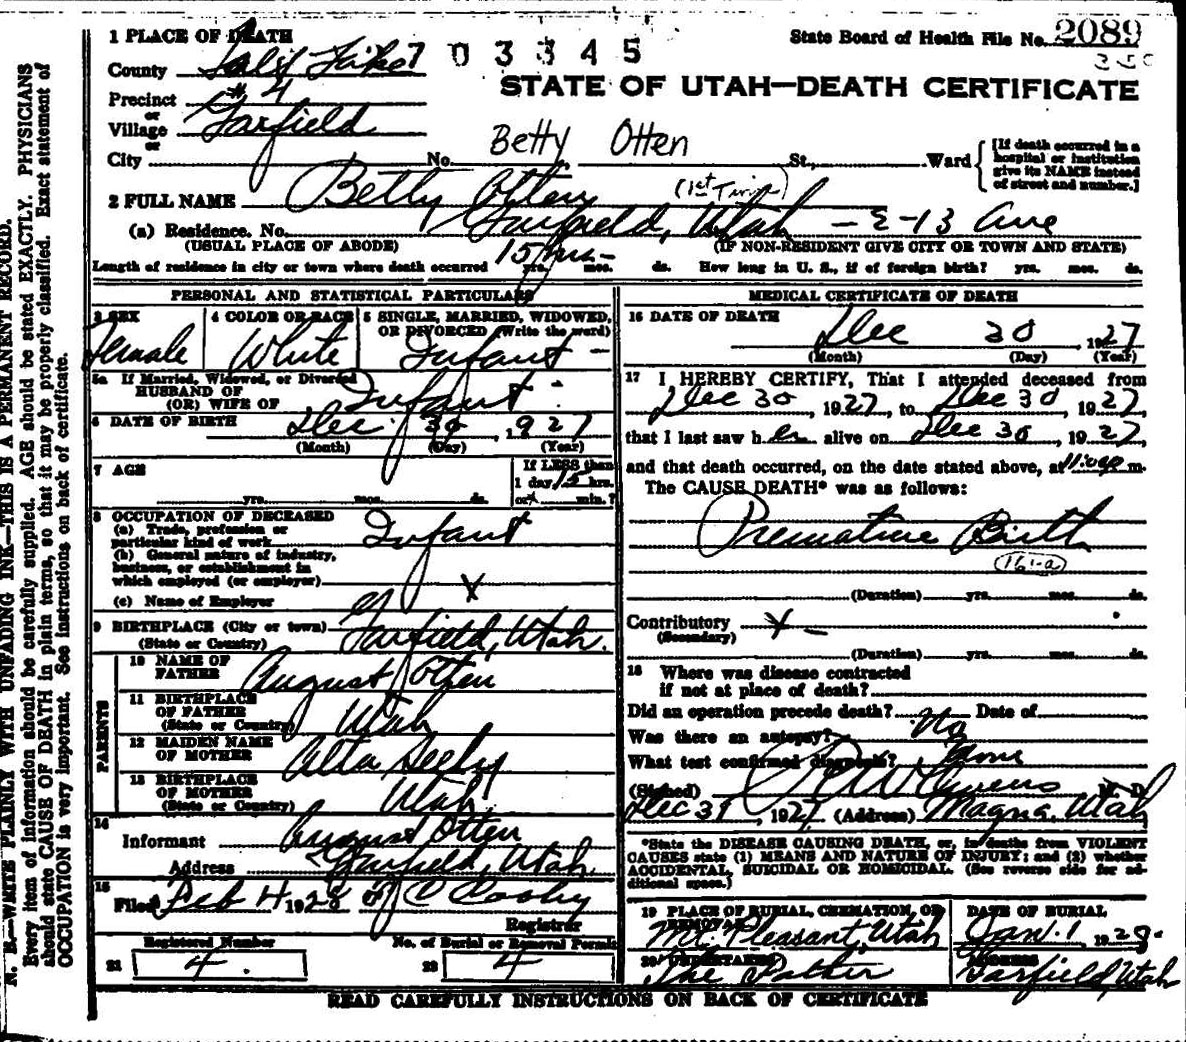 2089
350
1 PLACE OF DEATH
State Board of Health File No.
703345
County Salt Lake
STATE OF UTAH—DEATH CERTIFICATE
Precinct # 4
or
Village Garfield
or
City No. Betty Otten St., Ward
[If death occurred in a hospital or institution give its NAME instead of street and number.]
2 FULL NAME Betty Otten (1st Twin)
(a) Residence. No. Garfield, Utah – E-13 Ave
(USUAL PLACE OF ABODE) (IF NON-RESIDENT GIVE CITY OR TOWN AND STATE)
Length of residence in city or town where death occurred 15 hrs – yrs. mos. ds. How long in U. S., if of foreign birth? yrs. mos. ds.
PERSONAL AND STATISTICAL PARTICULARS
3 SEX Female
4 COLOR OR RACE White
5 SINGLE, MARRIED, WIDOWED, OR DIVORCED (Write the word) Infant –
5a If Married, Widowed, or Divorced
HUSBAND OF
(OR) WIFE OF Infant
6 DATE OF BIRTH Dec 30, 1927
(Month) (Day) (Year)
7 AGE yrs. mos. ds.
If LESS than 1 day 15 hrs. or min.?
8 OCCUPATION OF DECEASED
(a) Trade, profession or particular kind of work Infant
(b) General nature of industry, business, or establishment in which employed (or employer) X
(c) Name of Employer
9 BIRTHPLACE (City or town) Garfield, Utah.
(State or Country)
PARENTS
10 NAME OF FATHER August Otten
11 BIRTHPLACE OF FATHER (State or Country) Utah
12 MAIDEN NAME OF MOTHER Alta Seely
13 BIRTHPLACE OF MOTHER (State or Country) Utah
14
Informant August Otten
Address Garfield, Utah.
15
Filed Feb 4 1928
Registrar
Registered Number
21 4.
No. of Burial or Removal Permit
22 4
MEDICAL CERTIFICATE OF DEATH
16 DATE OF DEATH
Dec 30, 1927
(Month) (Day) (Year)
17 I HEREBY CERTIFY, That I attended deceased from
Dec 30, 1927, to Dec 30, 1927,
that I last saw her alive on Dec 30, 1927,
and that death occurred, on the date stated above, at m.
The CAUSE DEATH* was as follows:
Premature Birth
161-a
(Duration) yrs. mos. ds.
Contributory X –
(Secondary)
(Duration) yrs. mos. ds.
18 Where was disease contracted
if not at place of death?
Did an operation precede death? No Date of
Was there an autopsy?
What test confirmed diagnosis? None
(Signed) Owens M. D.
Dec 31, 1927 (Address) Magna, Utah
*State the DISEASE CAUSING DEATH, or, in deaths from VIOLENT
CAUSES state (1) MEANS AND NATURE OF INJURY; and (2) whether
ACCIDENTAL, SUICIDAL OR HOMICIDAL. (See reverse side for additional space.)
19 PLACE OF BURIAL, CREMATION, OR REMOVAL
Mt. Pleasant, Utah
DATE OF BURIAL
Jan. 1 1928.
20 UNDERTAKER
The Father
ADDRESS
Garfield, Utah
READ CAREFULLY INSTRUCTIONS ON BACK OF CERTIFICATE
N. B.—WRITE PLAINLY WITH UNFADING INK—THIS IS A PERMANENT RECORD.
Every item of information should be carefully supplied. AGE should be stated EXACTLY. PHYSICIANS
should state CAUSE OF DEATH in plain terms, so that it may be properly classified. Exact statement of
OCCUPATION is very important. See instructions on back of certificate.